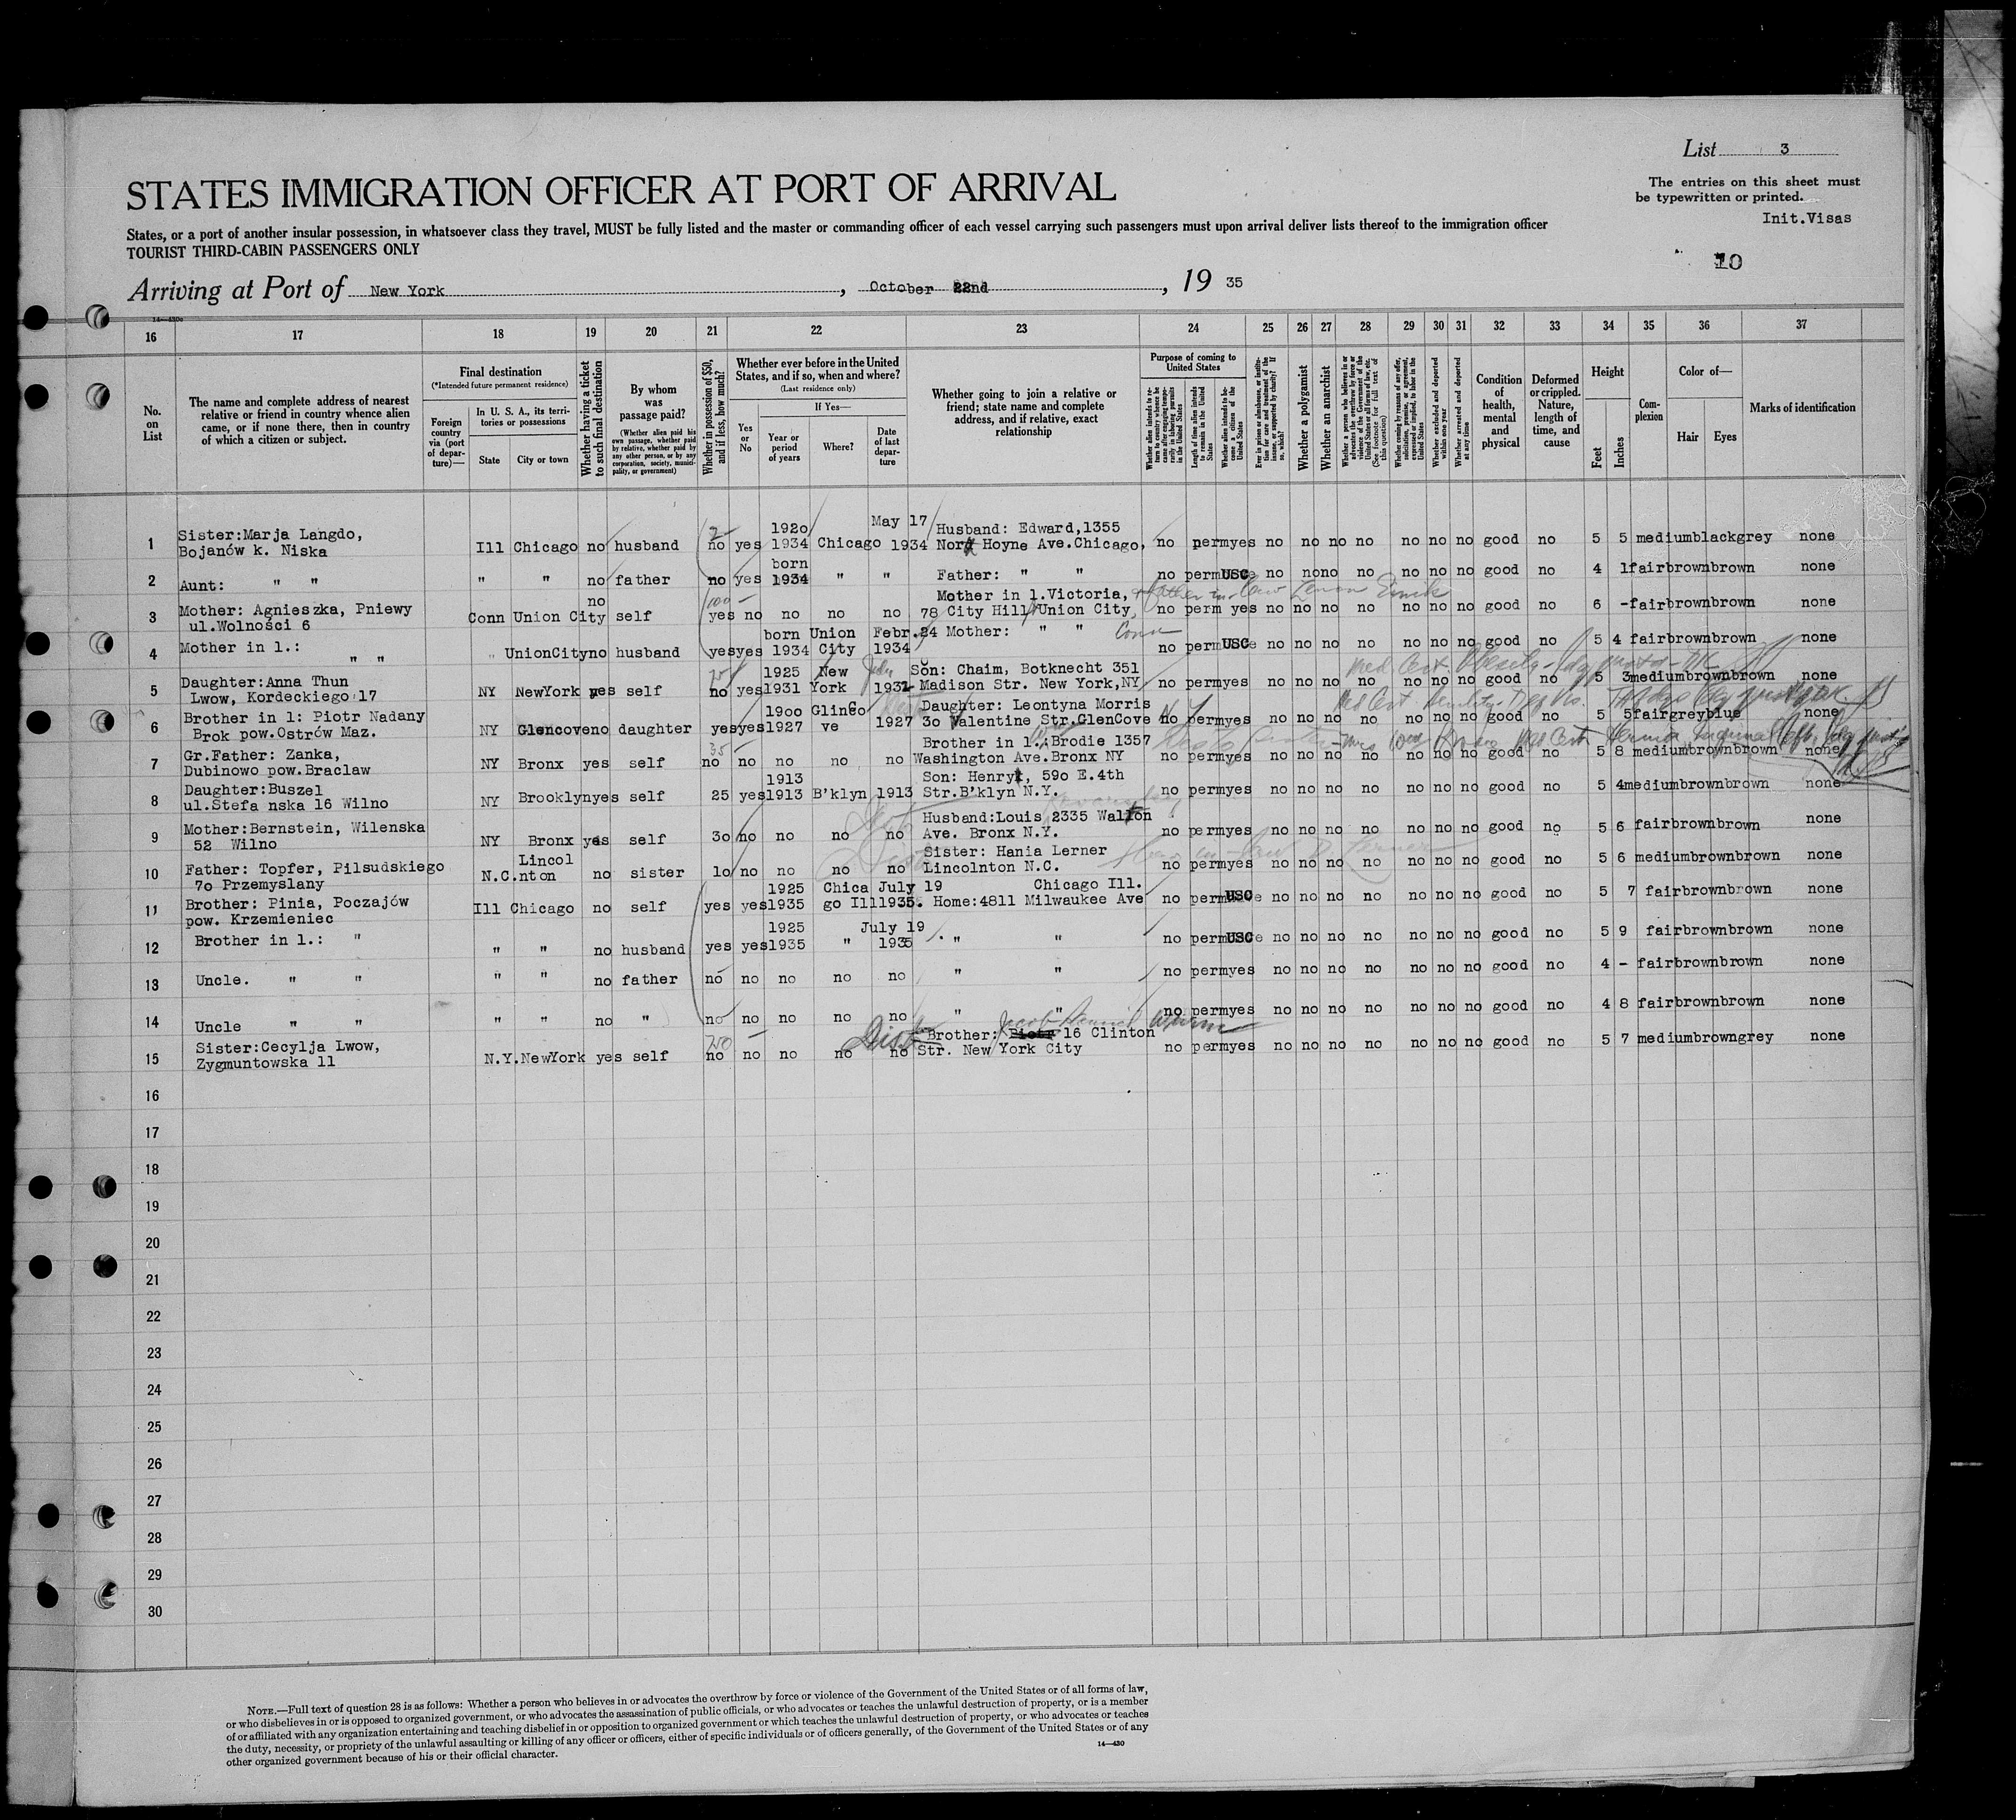 List 3
STATES IMMIGRATION OFFICER AT PORT OF ARRIVAL
The entries on this sheet must
be typewritten or printed.
Init.Visas
States, or a port of another insular possession, in whatsoever class they travel, MUST be fully listed and the master or commanding officer of each vessel carrying such passengers must upon arrival deliver lists thereof to the immigration officer
TOURIST THIRD-CABIN PASSENGERS ONLY
10
Arriving at Port of New York, October 22nd, 19 35
16 17 18 19 20 21 22 23 24 25 26 27 28 29 30 31 32 33 34 35 36 37
No. on List
The name and complete address of nearest relative or friend in country whence alien came, or if none there, then in country of which a citizen or subject.
Final destination
(*Intended future permanent residence)
Foreign country via (port of departure)—
In U. S. A., its territories or possessions
State
City or town
Whether having a ticket to such final destination
By whom was passage paid?
(Whether alien paid his own passage, whether paid by relative, whether paid by any other person, or by any corporation, society, municipality, or government)
Whether in possession of $50, and if less, how much?
Whether ever before in the United States, and if so, when and where?
(Last residence only)
Yes or No
If Yes—
Year or period of years
Where?
Date of last departure
Whether going to join a relative or friend; state name and complete address, and if relative, exact relationship
Purpose of coming to United States
Whether alien intends to return to country whence he came after engaging temporarily in laboring pursuits in the United States
Length of time alien intends to remain in the United States
Whether alien intends to become a citizen of the United States
Ever in prison or almshouse, or institution for care and treatment of the insane, or supported by charity? If so, which?
Whether a polygamist
Whether an anarchist
Whether a person who believes in or advocates the overthrow by force or violence of the Government of the United States or all forms of law, etc. (See footnote for full text of this question)
Whether coming by reasons of any offer, solicitation, promise, or agreement, expressed or implied, to labor in the United States
Whether excluded and deported within one year
Whether arrested and deported at any time
Condition of health, mental and physical
Deformed or crippled. Nature, length of time, and cause
Height
Feet
Inches
Complexion
Color of—
Hair
Eyes
Marks of identification
1920 May 17 Husband: Edward,1355
1 Sister:Marja Langdo, Bojanów k. Niska Ill Chicago no husband no yes 1934 Chicago 1934 Hoyne Ave.Chicago, no perm yes no no no no no no no good no 5 5 medium black grey none
born
2 Aunt: " " " " no father no yes 1934 " " Father: " " no perm USC no no no no no no no good no 4 1 fair brown brown none
no Mother in l.Victoria,
3 Mother: Agnieszka, Pniewy ul.Wolności 6 Conn Union City self yes no no no no 78 City Hill Union City, no perm yes no no no no no no no good no 6 - fair brown brown none
born Union Febr.24 Mother: " " Conn
4 Mother in l.: " " " UnionCity no husband yes yes 1934 City 1934 no perm USC no no no no no no no good no 5 4 fair brown brown none
1925 New July Son: Chaim, Botknecht 351
5 Daughter:Anna Thun Lwow, Kordeckiego 17 NY NewYork yes self no yes 1931 York Madison Str. New York,NY no perm yes no no no no no no no good no 5 3 medium brown brown none
1900 Glinco Daughter: Leontyna Morris
6 Brother in l: Piotr Nadany Brok pow.Ostrów Maz. NY Glencove no daughter yes yes 1927 ve 1927 30 Valentine Str.GlenCove N Y perm yes no no no no no no no good no 5 5 fair grey blue none
Brother in l.:Brodie 1357
7 Gr.Father: Zanka, Dubinowo pow.Braclaw NY Bronx yes self no no no no no Washington Ave.Bronx NY no perm yes no no no no no no no good no 5 8 medium brown brown none
1913 Son: Henry, 590 E.4th
8 Daughter:Buszel ul.Stefa nska 16 Wilno NY Brooklyn yes self 25 yes 1913 B'klyn 1913 Str.B'klyn N.Y. no perm yes no no no no no no no good no 5 4 medium brown brown none
Husband:Louis 2335 Walton
9 Mother:Bernstein, Wilenska 52 Wilno NY Bronx yes self 30 no no no no Ave. Bronx N.Y. no perm yes no no no no no no no good no 5 6 fair brown brown none
Lincol Sister: Hania Lerner
10 Father: Topfer, Pilsudskiego 70 Przemyslany N.C. nton no sister 10 no no no no Lincolnton N.C. no perm yes no no no no no no no good no 5 6 medium brown brown none
1925 Chica July 19 Chicago Ill.
11 Brother: Pinia, Poczajów pow. Krzemieniec Ill Chicago no self yes yes 1935 go Ill 1935. Home:4811 Milwaukee Ave no perm USC no no no no no no no good no 5 7 fair brown brown none
1925 July 19
12 Brother in l.: " " " no husband yes yes 1935 " 1935 " " no perm USC no no no no no no no good no 5 9 fair brown brown none
13 Uncle. " " " " no father no no no no no " " no perm yes no no no no no no no good no 4 - fair brown brown none
14 Uncle " " " " no " no no no no no " " no perm yes no no no no no no no good no 4 8 fair brown brown none
Brother: 16 Clinton
15 Sister:Cecylja Lwow, Zygmuntowska 11 N.Y. NewYork yes self no no no no no Str. New York City no perm yes no no no no no no no good no 5 7 medium brown grey none
16
17
18
19
20
21
22
23
24
25
26
27
28
29
30
NOTE.—Full text of question 28 is as follows: Whether a person who believes in or advocates the overthrow by force or violence of the Government of the United States or of all forms of law,
or who disbelieves in or is opposed to organized government, or who advocates the assassination of public officials, or who advocates or teaches the unlawful destruction of property, or is a member
of or affiliated with any organization entertaining and teaching disbelief in or opposition to organized government or which teaches the unlawful destruction of property, or who advocates or teaches
the duty, necessity, or propriety of the unlawful assaulting or killing of any officer or officers, either of specific individuals or of officers generally, of the Government of the United States or of any
other organized government because of his or their official character.
14—430